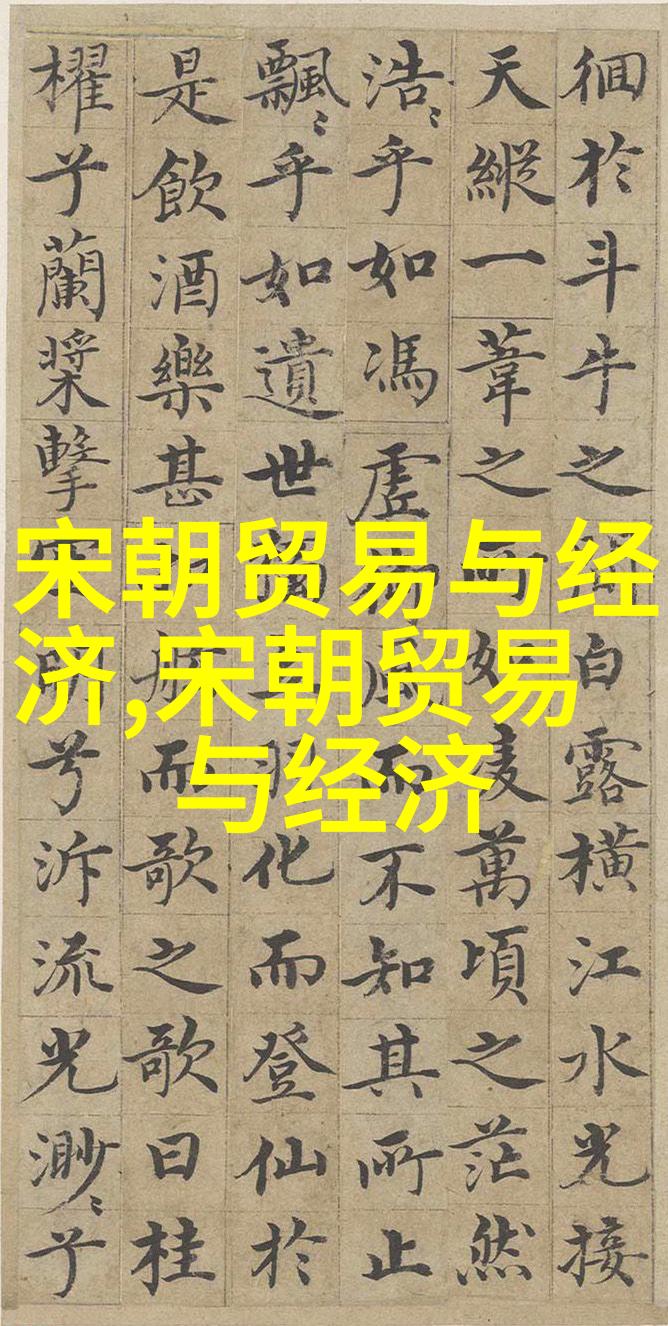 徊於斗牛之間白露橫江水光接
天縱一葦之所如凌萬頃之茫然
浩〻乎如馮虛風而不知其所止
飄〻乎如遺世獨立羽化而登仙於
是飲酒樂甚舷而歌之歌曰桂
櫂兮蘭槳擊空明兮泝流光渺〻兮
宋朝贸易与经
济,宋朝贸易
与经济